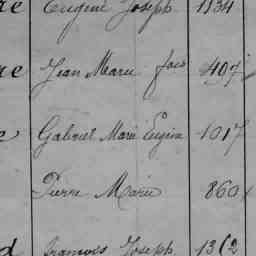 re Eugène Joseph 1134
re Jean Marie fois 407
e Gabriel Marie Eugène 1017
Pierre Marie 860
d François Joseph 1362